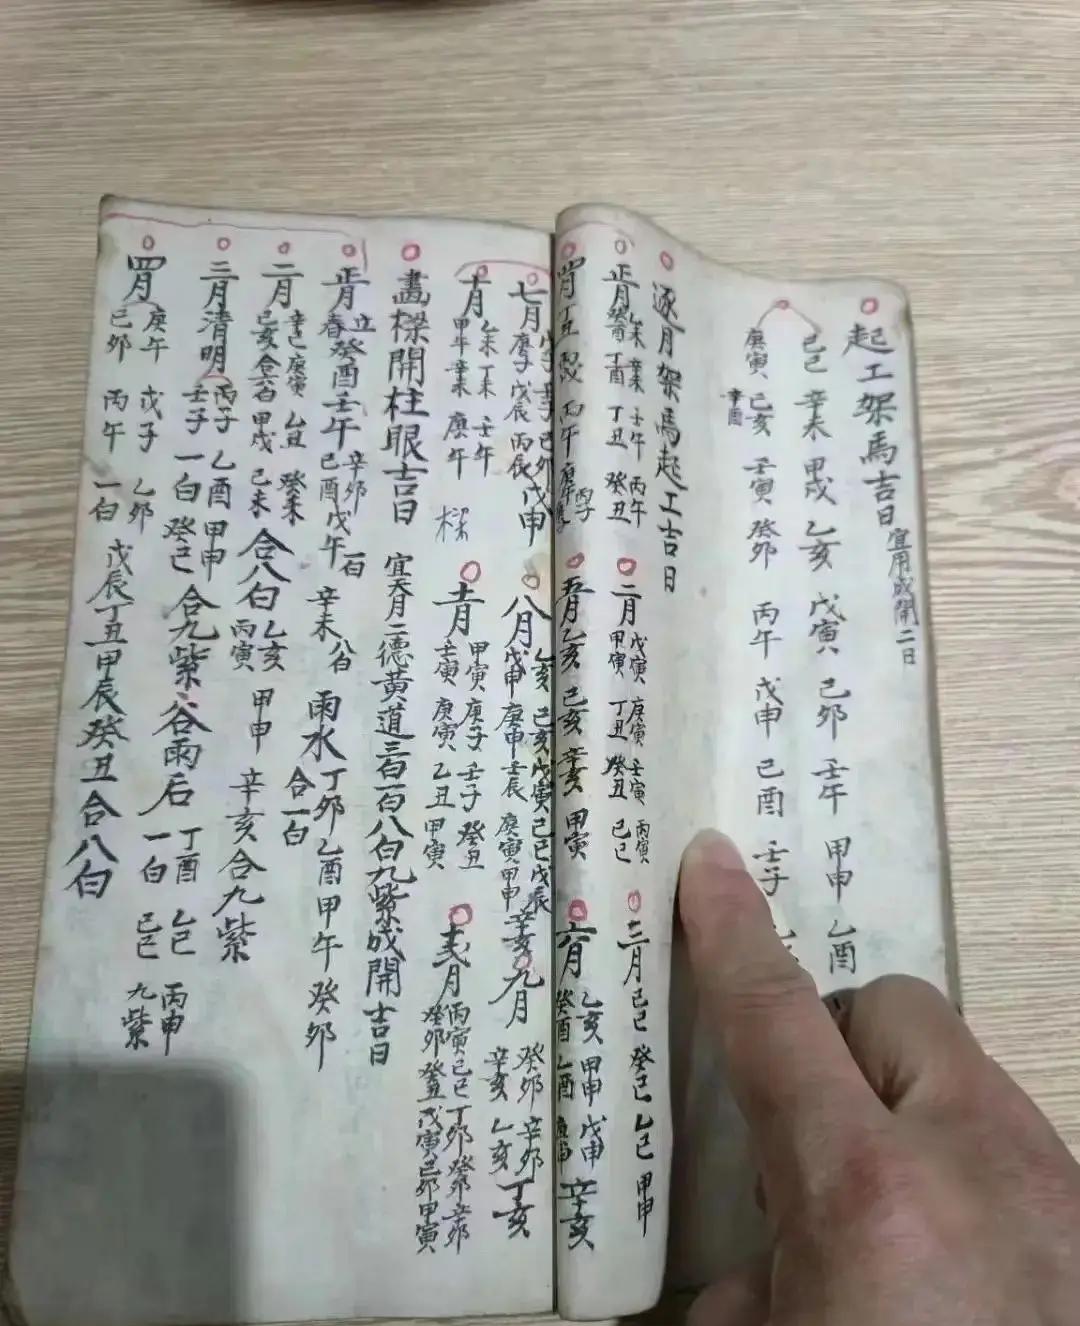 起工架馬吉日 宜用成開二日
己巳 辛未 甲戌 乙亥 戊寅 己卯 壬午 甲申 乙酉
庚寅 己亥 壬寅 癸卯 丙午 戊申 己酉 壬子
辛酉
逐月架馬起工吉日
正月 乙未 辛未 壬午 丙午
丁酉 丁丑 癸丑
二月 戊寅 庚寅 壬寅 丙寅
甲寅 丁丑 癸丑 己巳
三月 己巳 癸巳 乙巳 甲申
四月 丁丑 丙午 丙子
五月 乙亥 己亥 辛亥 甲寅
六月 乙亥 甲申 戊申 辛亥
癸酉 乙酉
七月 己卯 戊申
庚子 戊辰 丙辰
八月 乙亥 己亥 戊寅 己巳 戊辰
戊申 庚申 壬辰 庚寅 甲申 辛亥
九月 癸卯 辛卯 丁亥
辛亥 乙亥
十月 乙未 丁未 壬午
甲午 辛未 庚午
樑
十一月 甲寅 庚子 壬子 癸丑
壬寅 庚寅 乙丑 甲寅
十二月 丙寅 己巳 丁卯 癸卯 辛卯
癸卯 癸丑 戊寅 己卯 甲寅
畫樑開柱眼吉日 宜天月二德黃道三白一白八白九紫成開吉日
正月 立春 癸酉 壬午 辛卯 己酉 戊午 一白 辛未 八白 雨水 丁卯 乙酉 甲午 癸卯
合一白
二月 辛巳 庚寅 乙丑 癸未
己亥 合六白 甲戌 己未
合八白 乙亥 丙寅 甲申 辛亥 合九紫
三月清明 丙子 乙酉 甲申
壬子 一白 癸巳
合九紫 谷雨后 丁酉 乙巳 丙申
一白 己巳 九紫
四月 庚午 戊子 乙卯
己卯 丙午 一白
戊辰 丁丑 甲辰 癸丑 合八白